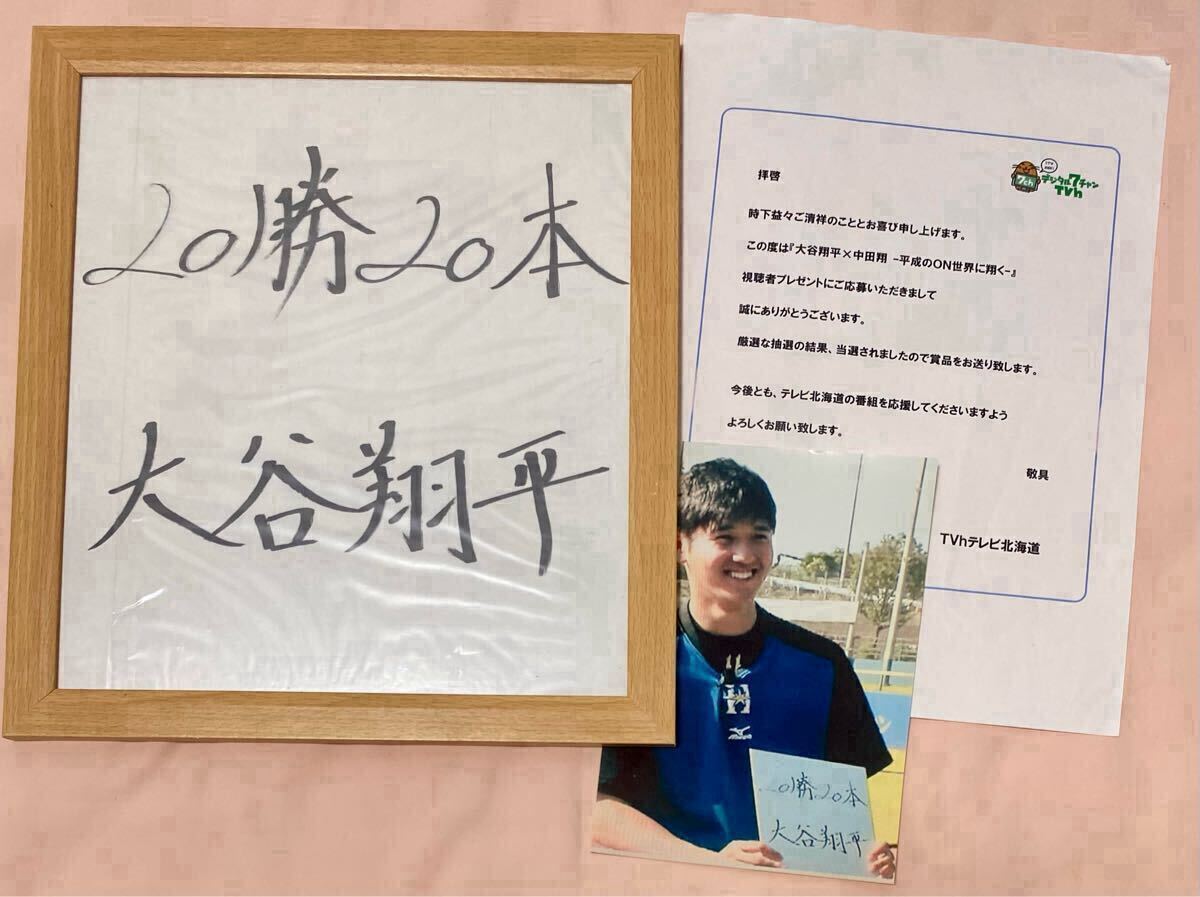 20勝20本
大谷翔平
7ch
デジタル7チャン
TVh
拝啓
時下益々ご清祥のこととお喜び申し上げます。
この度は『大谷翔平×中田翔 -平成のON世界に翔く-』
視聴者プレゼントにご応募いただきまして
誠にありがとうございます。
厳選な抽選の結果、当選されましたので賞品をお送り致します。
今後とも、テレビ北海道の番組を応援してくださいますよう
よろしくお願い致します。
敬具
TVhテレビ北海道
20勝20本
大谷翔平